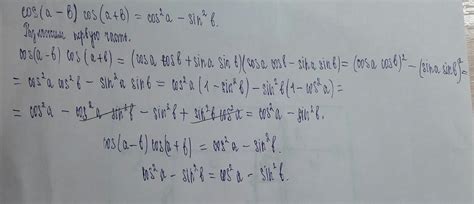 cos(a - b) cos(a+b) = cos²a - sin²b.
первую часть.
cos(a-b) cos(a+b) = (cosa cosb + sina sinb)(cosa cosb - sina sinb) = (cosa cosb)² - (sina sinb)² =
= cos²a cos²b - sin²a sin²b = cos²a (1 - sin²b) - sin²b (1 - cos²a) =
= cos²a - cos²a sin²b - sin²b + sin²b cos²a = cos²a - sin²b.
cos(a-b) cos(a+b) = cos²a - sin²b.
cos²a - sin²b = cos²a - sin²b.